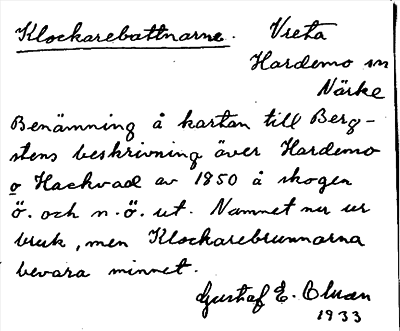 Klockarebattnarne. Vreta
Hardemo sn
Närke
Benämning å kartan till Berg-
stens beskrivning över Hardemo
o Hackvad av 1850 å skogen
ö. och n.ö. ut. Namnet nu ur
bruk, men Klockarebrunnarna
bevara minnet.
Gustaf E. Olsson
1933